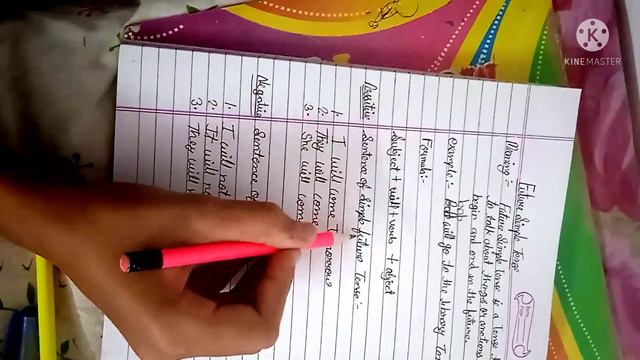 KINEMASTER
Future Simple Tense
Meaning :- Future Simple tense is a tense
to talk about things or
begin and end in the future.
Example :- will go to the library
Formula:-
Subject + will + verb + object
Positive Sentence of Simple future Tense :-
1. I will come Tomorrow
2. They will come
3. She will come
Negative Sentence of
1. I will not
2. It will no
3. They will